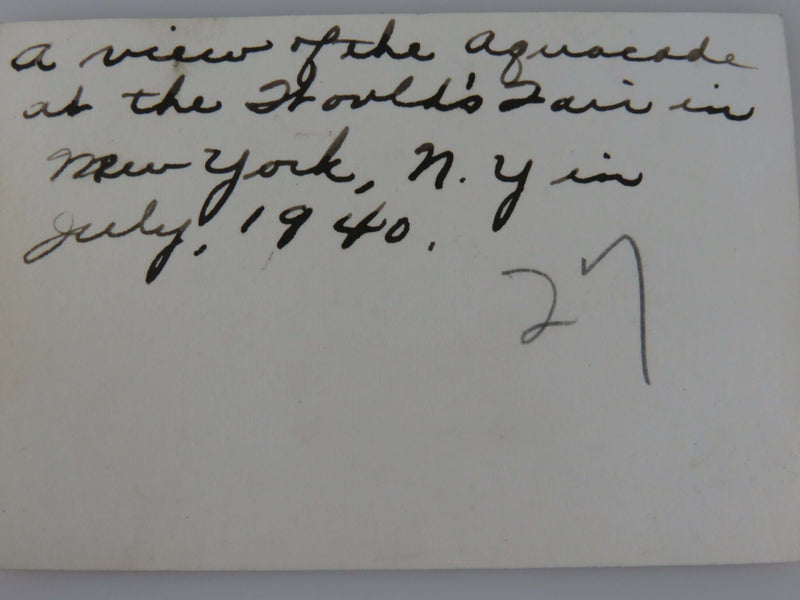 A view of the Aquacade
at the World's Fair in
New York, N. Y in
July, 1940.
27